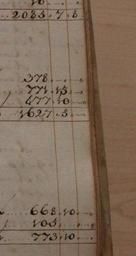 10
2035 . 7 . 8
378
771 . 15
477 . 10
1627 . 5
668 . 10
105
773 . 10